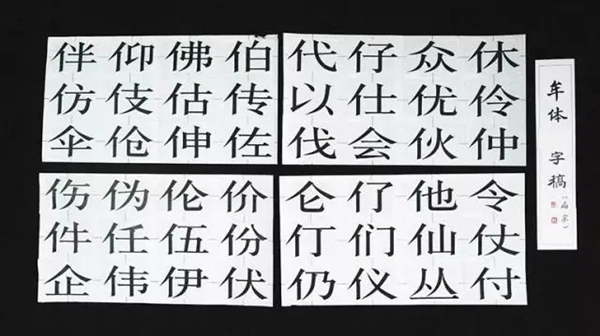 伴仰佛伯 代仔众休
仿伎估传 以仕优伶
伞伧伸佐 伐会伙仲
伤伪伦价 仑他令
件任伍份 仃们仙仗
企伟伊伏 仍仪丛付
牟体 字稿